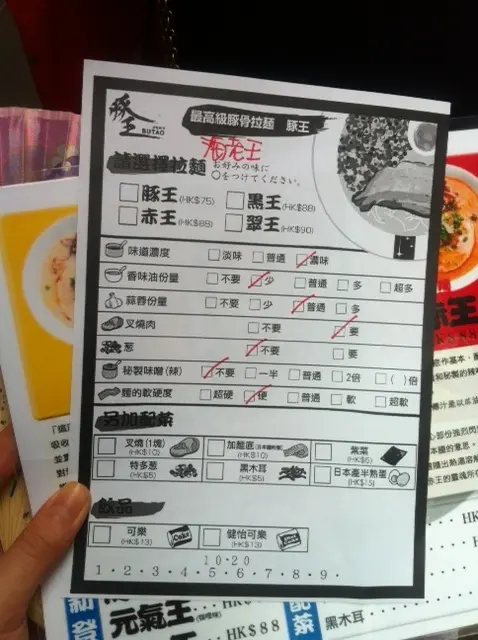 豚王
BUTAO
最高級豚骨拉麵 豚王
海老王
請選擇拉麵
お好みの味に
○をつけてください。
豚王(HK$75) 黒王(HK$88)
赤王(HK$88) 翠王(HK$90)
味道濃度 淡味 普通 濃味
香味油份量 不要 少 普通 多 超多
蒜蓉份量 不要 少 普通 多
叉燒肉 不要 要
葱 不要 要
秘製味噌(辣) 不要 一半 普通 2倍 ( )倍
麵的軟硬度 超硬 硬 普通 軟 超軟
另加配菜
叉燒(1塊) (HK$10) 加麵底 (HK$10) 紫菜 (HK$5)
特多葱 (HK$5) 黑木耳 (HK$5) 日本產半熟蛋 (HK$15)
飲品
可樂 (HK$13) 健怡可樂 (HK$13)
10·20
1·2·3·4·5·6·7·8·9·
元氣王 HK$88
黑木耳